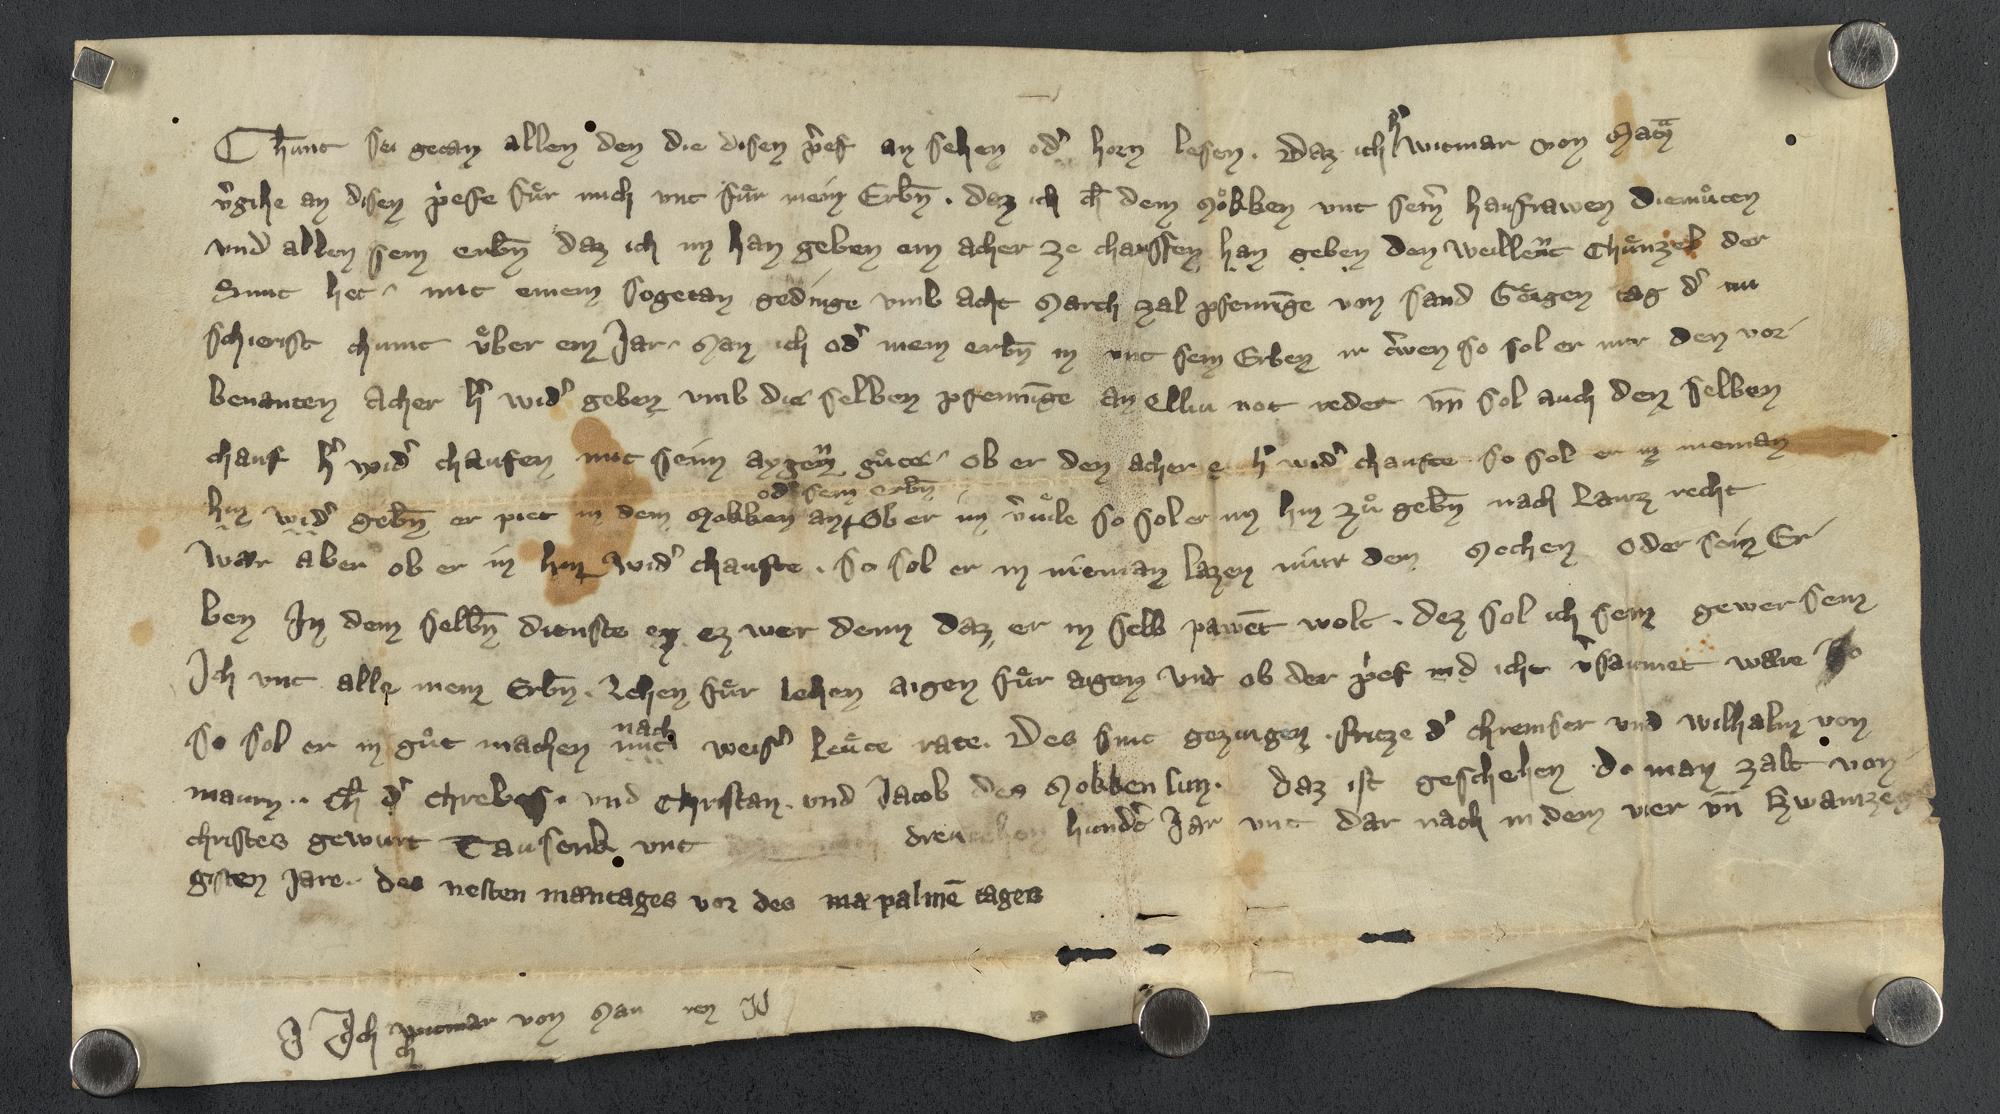 Chunt sei getan allen den die disen p̾ief an sehen od̾ horn lesen . Daz ich h̾ witmar von
v̾gihe an disen p̾iefe fuͤr mich vnt fuͤr mein Erbn̄ . daz ich ch̾ dem Mokken vnt sein̾ hausfrawen diemuͤten
vnd allen sein erbn̄ daz ich in han geben ein acher ze chauffen han geben den weillent Chuͤnzel der
Sunt het mit einem sogetan gedinge vmb acht March zal pfenni̅ge von sand Goͤrigen tag d̾ nu
schierist chumt uͤber ein Jar Man ich od̾ mein erbn̄ in vnt sein Erben so sol er mir den vor
benanten acher h̾ wid̾ geben vmb die selben pfenni̅ge an elliu not reder vn̄ sol auch den selben
chauf h̾ wid̾ chaufen mit seim aygen guͤte ob er den acher e h̾ wid̾ chaufte so sol er in nieman
hin wid̾ gebn̄ er piet in dem Mokken an od̾ sein erbn̄ Ob er im so sol er im hin zuͦ gebn̄ nach Lantz recht
War aber ob er in hin wid̾ chaufte . so sol er in nieman lazen nuir dem Mochen oder sein Er
ben In dem selbn̄ dienste ez wer denn daz er in selb pawēt wolt . dez sol ich sein gewer sein
Ich vnt alle mein Erbn̄ . Lehen fuͤr lehen aigen fuͤr aigen vnt ob der p̾ief ind icht v̾saumet ware
so sol er in guͦt machen nach weis̾ Leuͤte rate . Des sint gezuigen . fritze d̾ chremser vnd wilhalm von
maurn .. ch̾ d̾ chrebs . vnd christan . vnd Jacob des Mokken sun . daz ist geschehen do man zalt von
christes gewurt Tausenk vnt dreuzehen hundt̾ Jar vnt dar nach in dem vier vn̄ Zwaintze
gisten Jare . des nesten mantages vor des palmē tages
Ich witmar von Mau ren